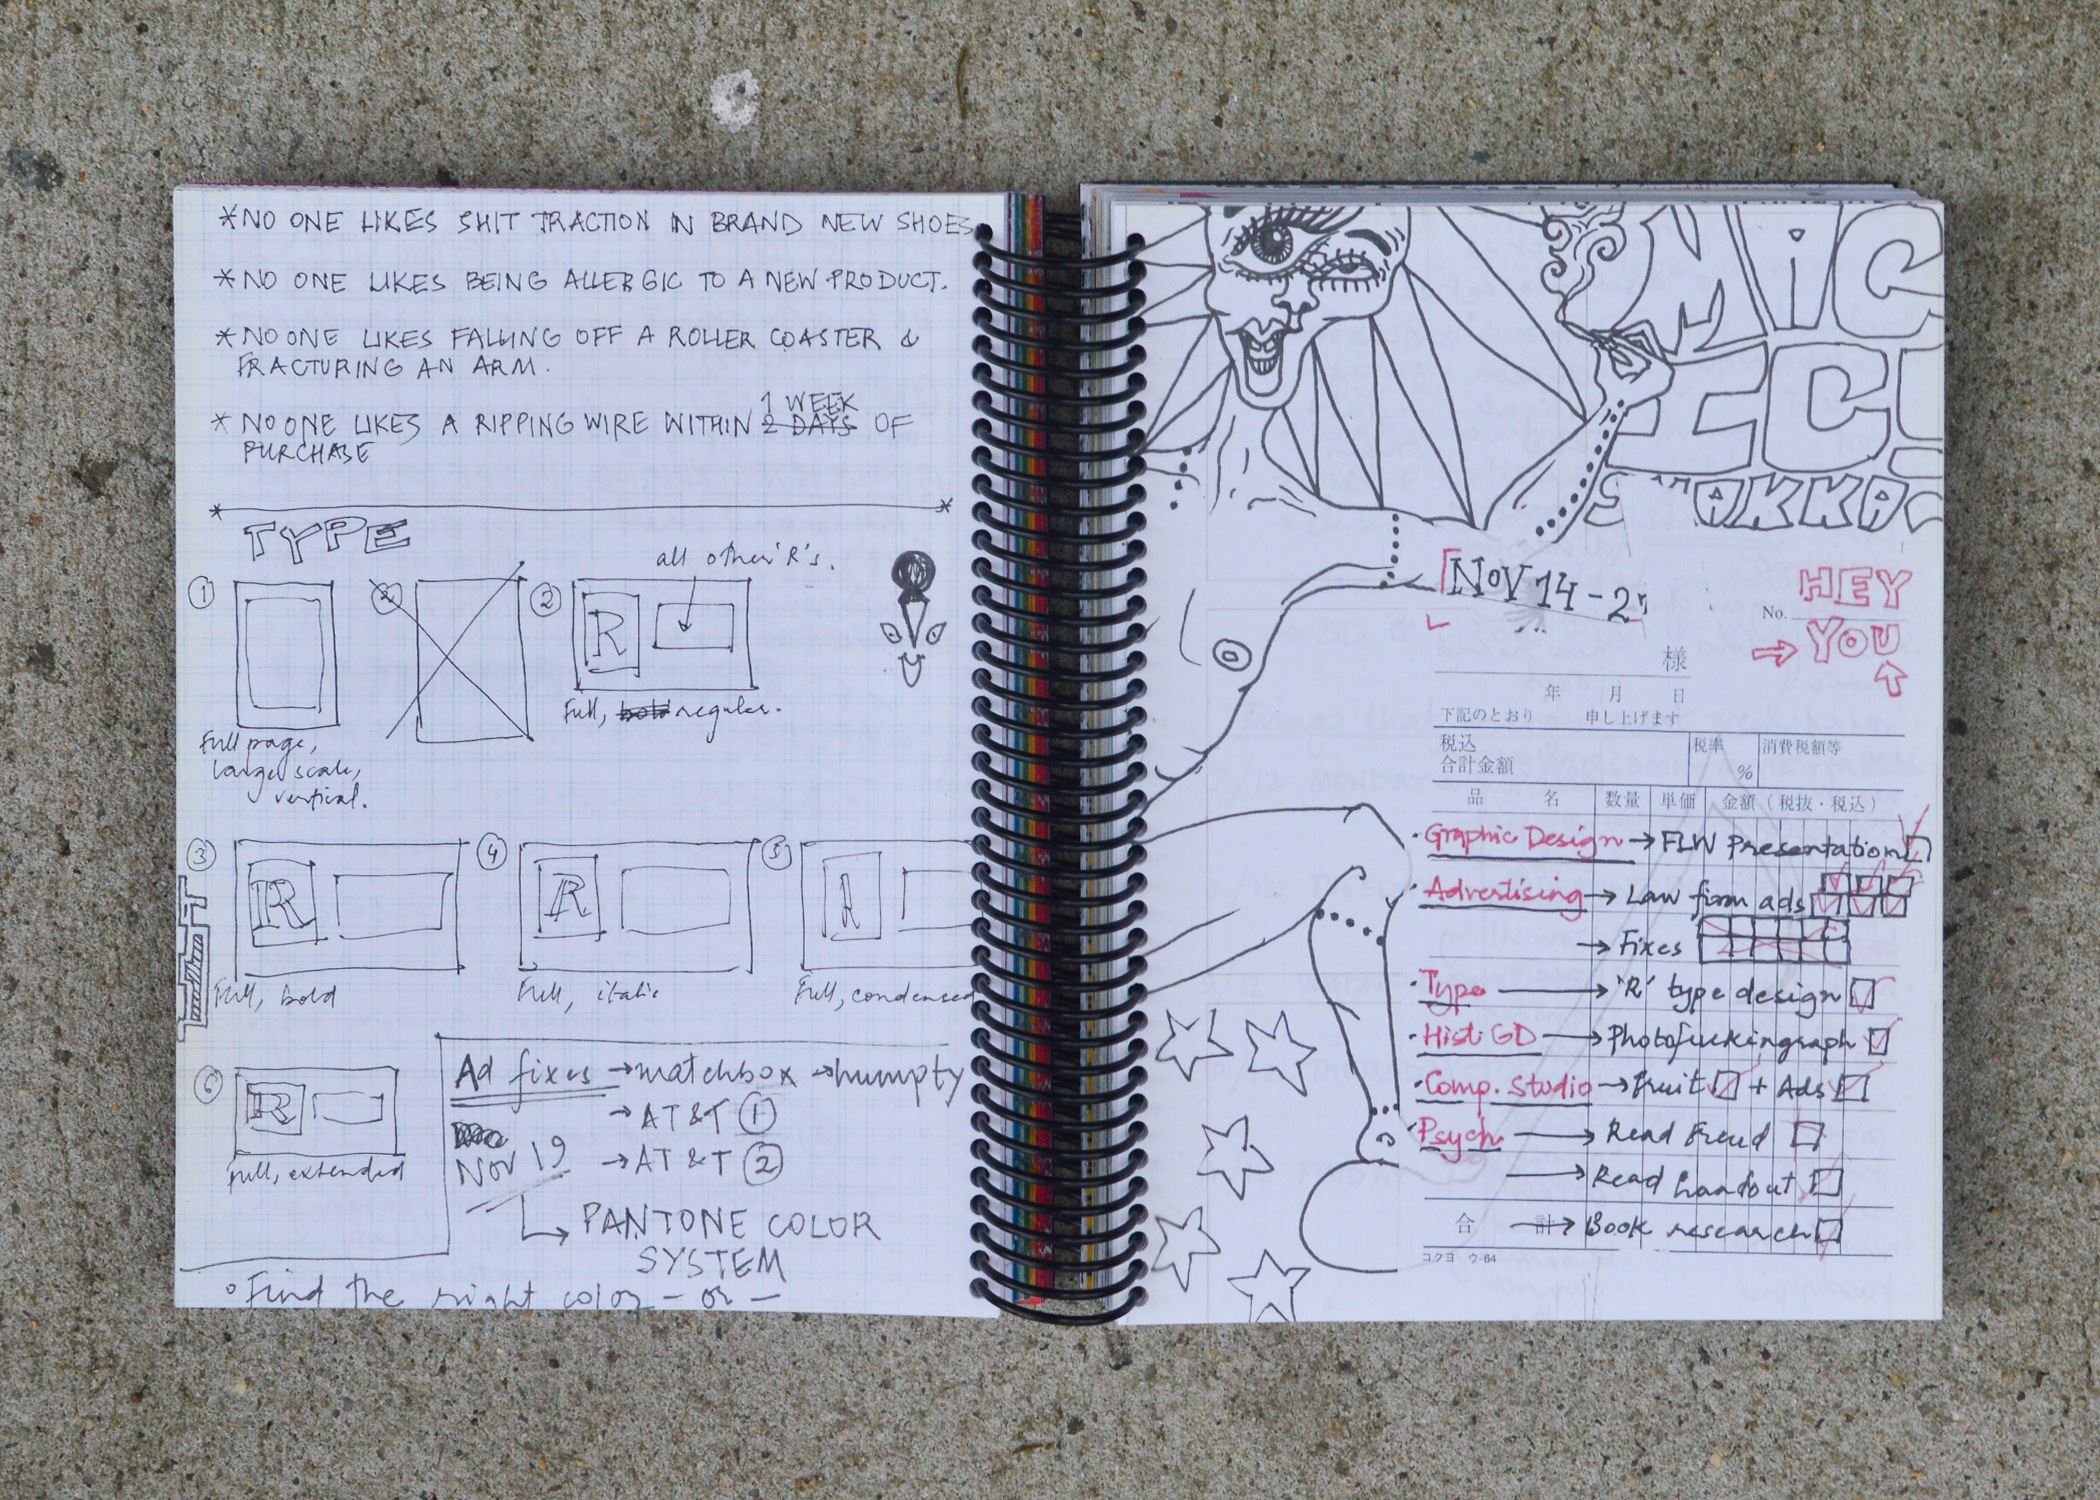 *NO ONE LIKES SHIT TRACTION IN BRAND NEW SHOES
*NO ONE LIKES BEING ALLERGIC TO A NEW PRODUCT.
*NO ONE LIKES FALLING OFF A ROLLER COASTER &
FRACTURING AN ARM.
1 WEEK
* NO ONE LIKES A RIPPING WIRE WITHIN 2 DAYS OF
PURCHASE
TYPE
all other 'R's.
1
2
2
R
Full, bold regular.
Full page,
large scale,
vertical.
3
R
4
R
5
R
Full, bold
Full, italic
Full, condensed
6
R
Full, extended
Ad fixes → matchbox → humpty
→ AT&T 1
NOV 19 → AT&T 2
PANTONE COLOR
SYSTEM
Find the right color - or -
MiC
EC
AKKA
NOV 14 - 2
HEY
No.
YOU
様
年 月 日
下記のとおり 申し上げます
税込
合計金額
税率
%
消費税額等
品 名 数量 単価 金額(税抜・税込)
· Graphic Design → FLW Presentation
· Advertising → Law firm ads
→ Fixes
· Type → 'R' type design
· Hist GD → Photofuckingraph
· Comp. Studio → Fruit + Ads
· Psych → Read Freud
→ Read handout
合 計 → Book research
コクヨ ウ-64